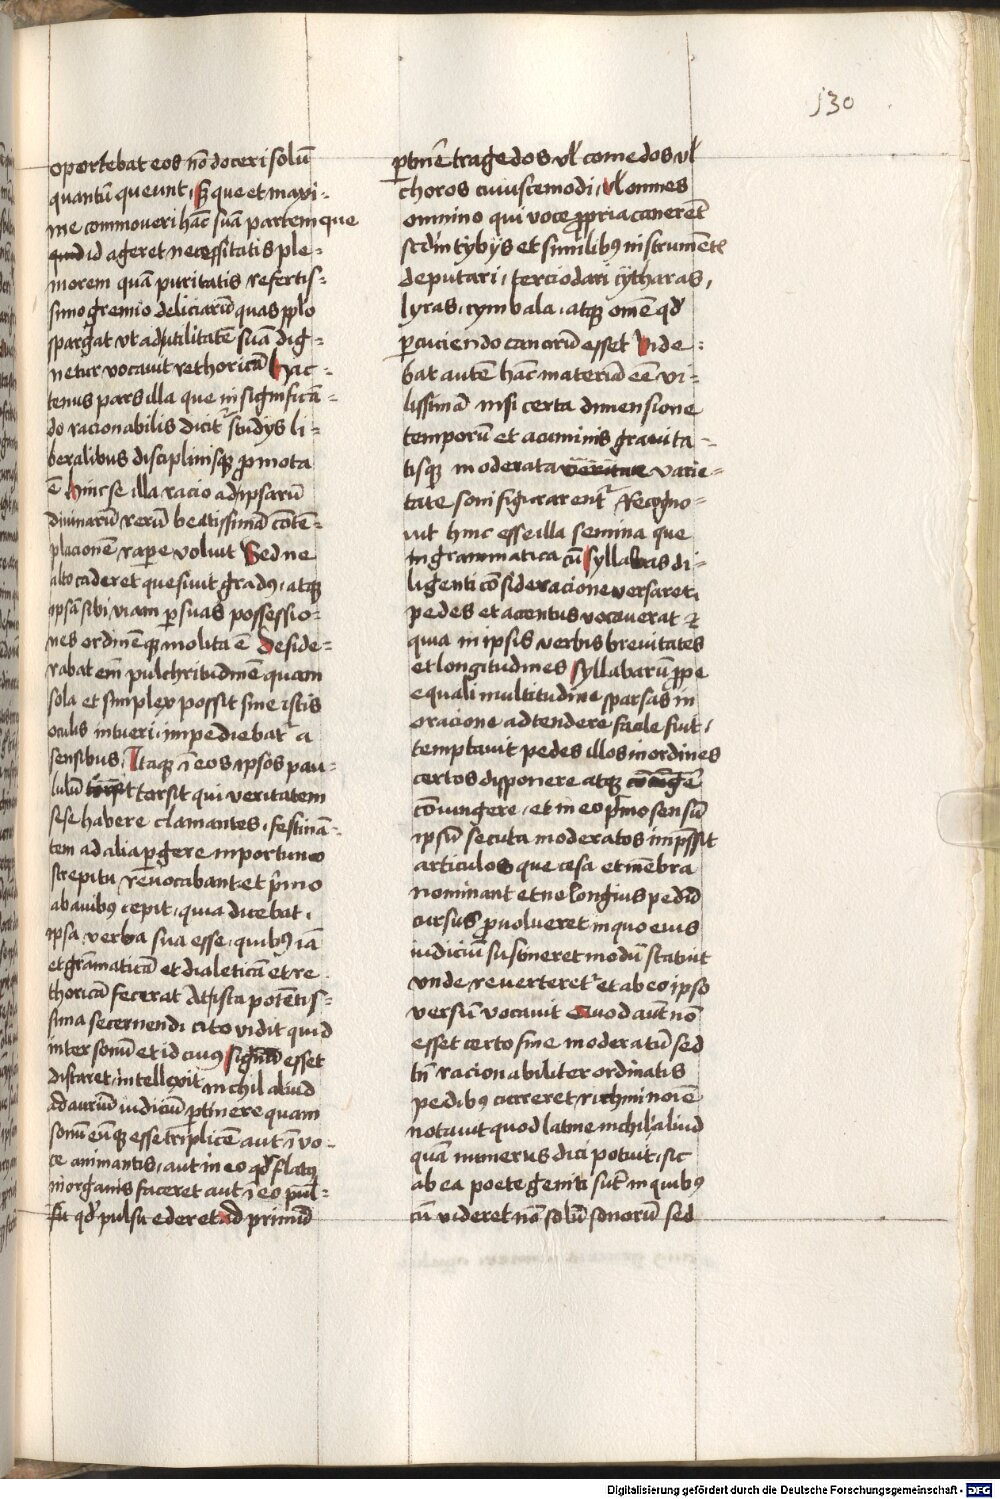 130
oportebat eos nō doceri solū
quantū queunt, sꝫ que et maxi-
me commoveri hāc suā partem que
id ageret necessitatis ple-
niorem quā puritatis refertis-
simo gremio deliciarū quas pplo
spargat ut ad utilitatē suā dig-
netur vocavit rethoricā hac-
tenus pars illa que in significā-
do racionabilis dicitr studys li-
beralibus disciplinisqꝫ pmota
ē hinc se illa racio ad ipsarū
divinarū rerū beatissimā cōtē-
placionē rape voluit Sed ne
alto caderet quesivit gradꝰ, atqꝫ
ipsā sibi viam p suas possessio-
nes ordinēqꝫ molita ē deside-
rabat em̄ pulchritudinē quam
sola et simplex possit sine istis
oculis intueri, impediebatr a
sensibus, Itaqꝫ ī eos ipsos pau-
lulū torsit qui veritatem
sese habere clamantes, festinā-
tem ad alia pgere inportuno
strepitu revocabant et p̄mo
ab auribus cepit, quia dicebat,
ipsa verba sua esse, quibꝰ iā
et grāmaticā et dialeticā et re
thoricā fecerat At ista potētis-
sima secernendi cito vidit quid
inter sonū et id cuiꝰ signū esset
distaret, intellexit nichil aliud
ad auriū iudiciū ptinere quam
sonū eūqꝫ esse triplicē aut ī vo-
ce animantis, aut in eo qđ flatꝰ
in organis faceret aut ī eo
qđ pulsu ederet ad primū
ptinē tragedos vł comedos vł
choros cuiuscemodi, vł omnes
omnino qui voce ppria canerēt
scdm̄ tybys et similibꝰ instrumētꝭ
deputari, tercio dari cytharas,
lyras, cymbala, atqꝫ omē qđ
pcuciendo canorū esset Vide-
bat autē hāc materiā eē vi-
lissimā nisi certa dimensione
temporū et acuminis gravita-
tisqꝫ moderata varie-
tate soni figurarentr Recogno-
vit hinc esse illa semina que
in grammatica cū syllabas di-
ligenti cōsideracione versaret,
pedes et accentus vocaverat et
quia in ipsis verbis brevitates
et longitudines syllabarū ppe
equali multitudine sparsas in
oracione adtendere facile fuit,
temptavit pedes illos in ordines
certos disponere atqꝫ
cōiungere, et in eo p̄mo sensū
ipsū secuta moderatos imp̄ssit
articulos que cesa et mēbra
nominant et ne longius pedū
cursus pvolveret in quo eius
iudiciū sustineret modū statuit
unde reverteretr et ab eo ipso
versū vocavit Quod aūt nō
esset certo fine moderatū sed
tn̄ racionabiliter ordinatis
pedibꝰ curreret richmi noīe
notavit quod latine nichil aliud
quā numerus dici potuit, sic
ab ea poete geniti sūt in quibꝰ
cū videret nō solū sonorū sed
Digitalisierung gefördert durch die Deutsche Forschungsgemeinschaft - DFG